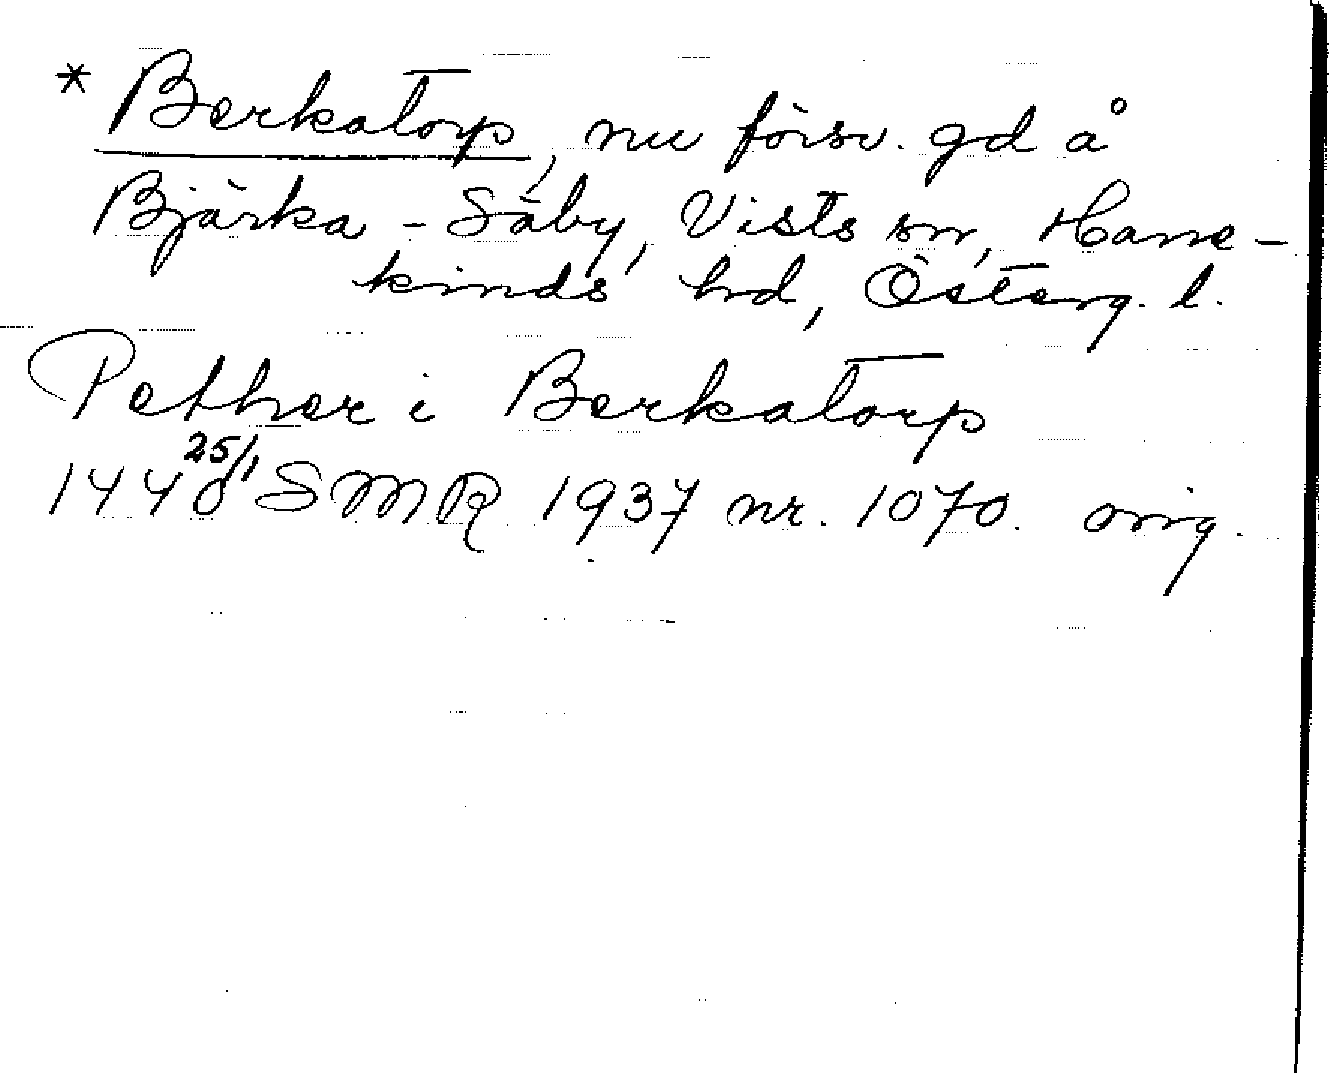 * Berkatorp, nu försv. gd å
Bjärka - Säby, Vists sn, Hane-
kinds hd, Österg. l.
Pether i Berkatorp
1440 25/1 SMR 1937 nr. 1070. orig.